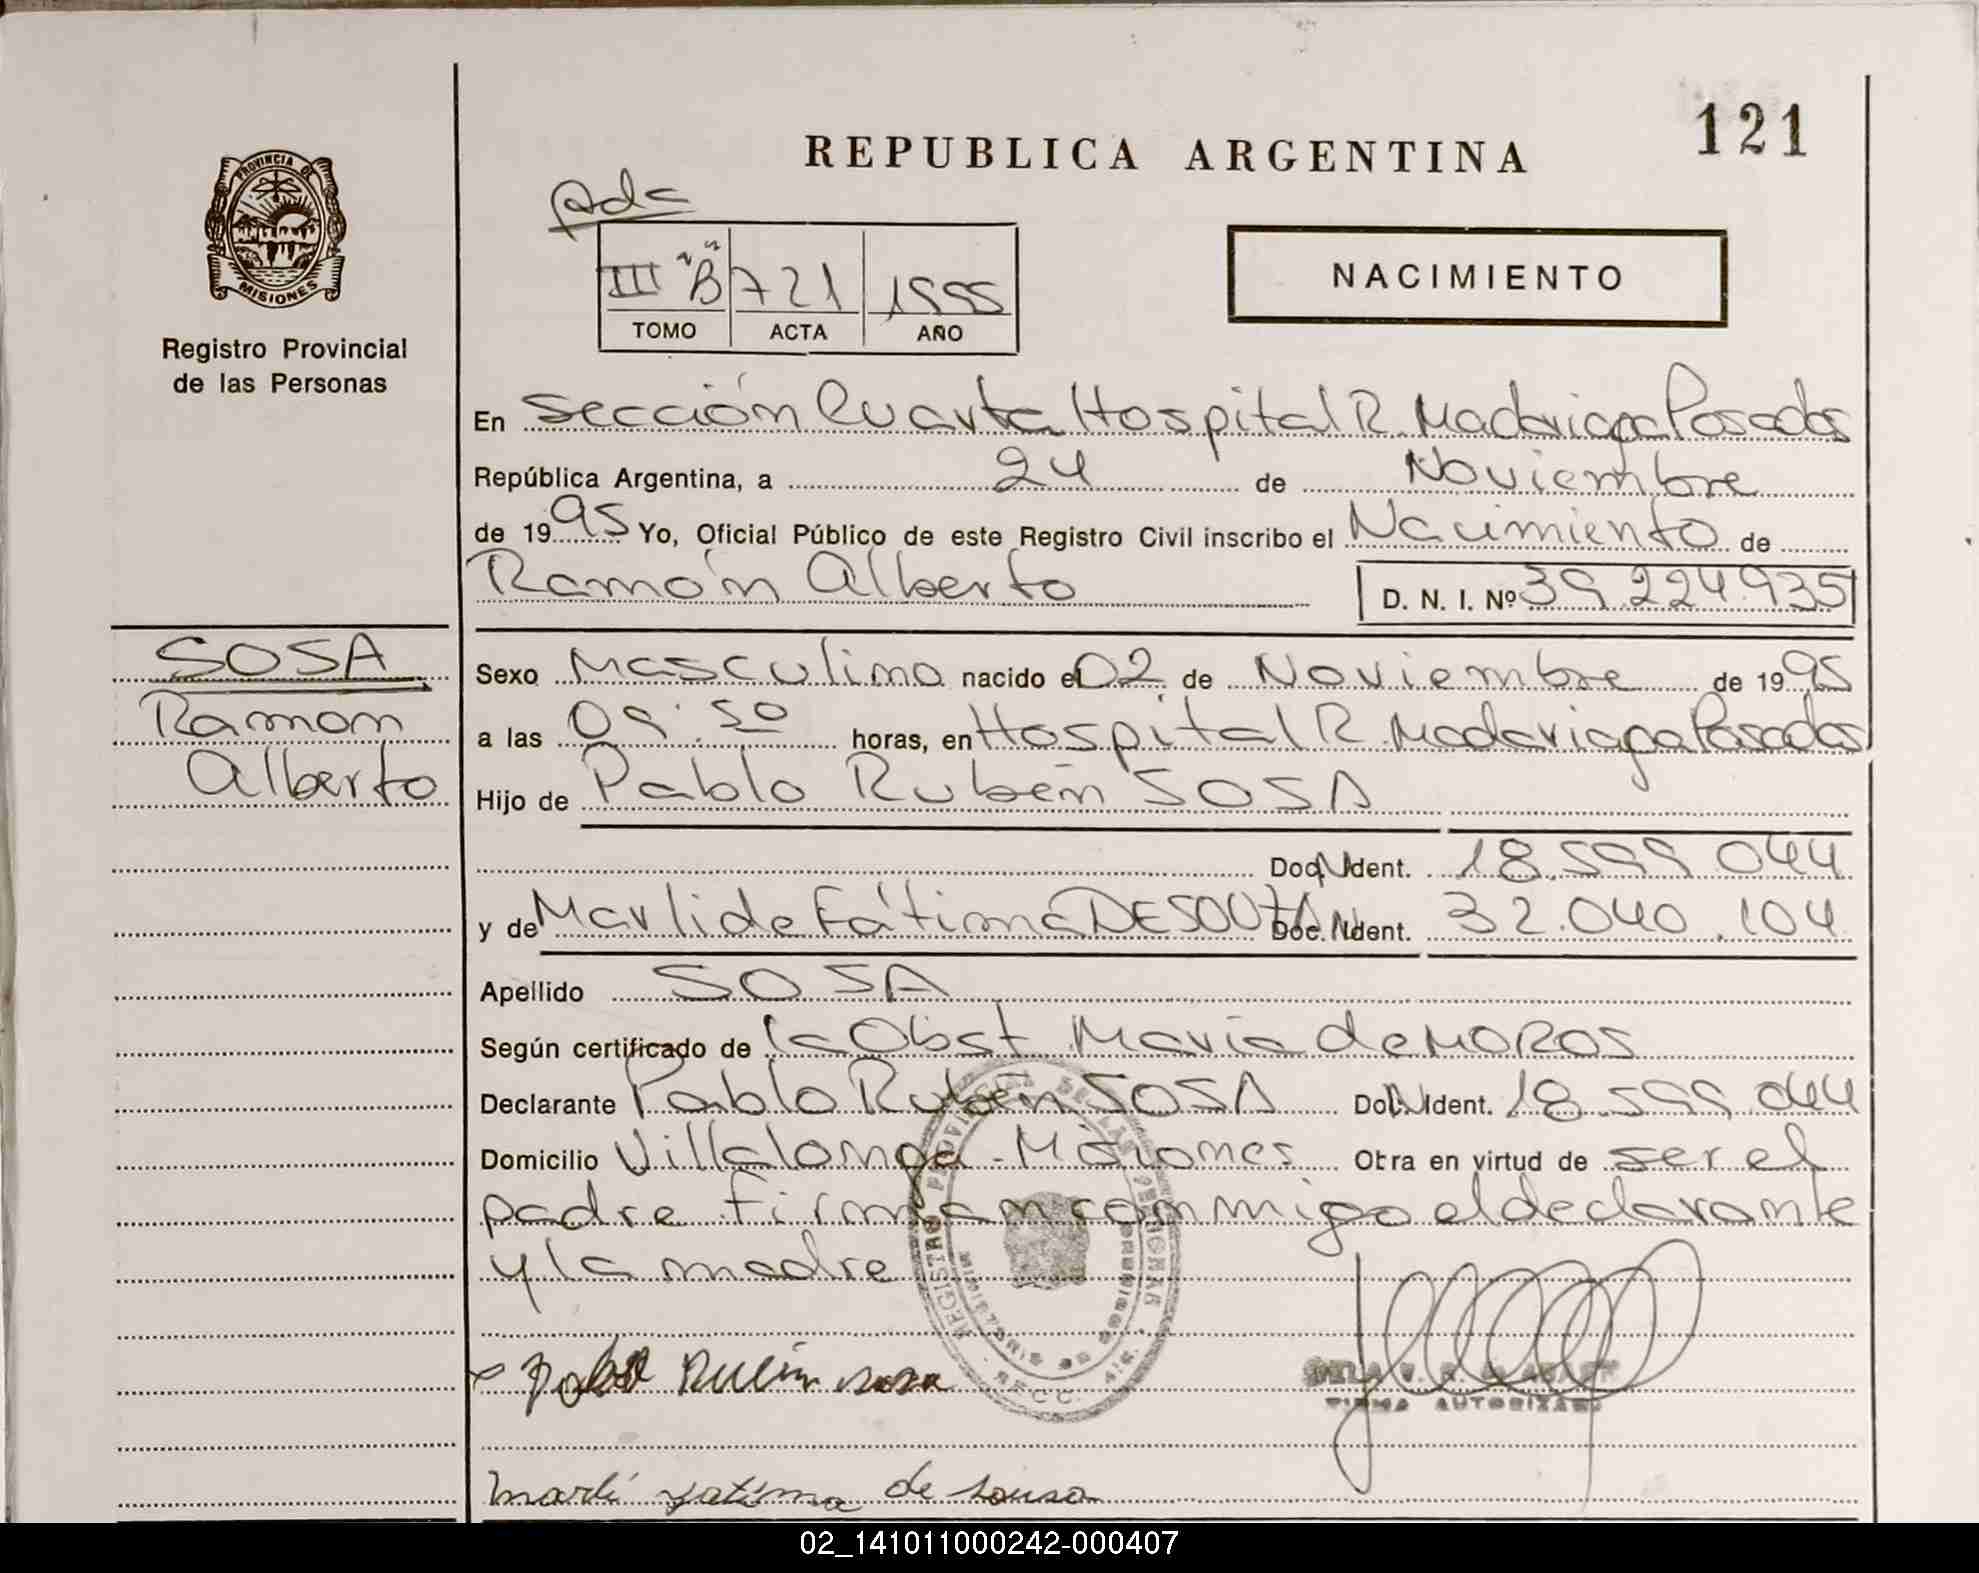 121
REPUBLICA ARGENTINA
PROVINCIA DE
MISIONES
Registro Provincial
de las Personas
III "B" 721 1995
TOMO ACTA AÑO
NACIMIENTO
En Sección Cuarta Hospital R. Madariaga Posadas
República Argentina, a 24 de Noviembre
de 1995 Yo, Oficial Público de este Registro Civil inscribo el Nacimiento de
Ramón Alberto D. N. I. Nº 39.224.935
SOSA
Ramon
Alberto
Sexo Masculino nacido el 02 de Noviembre de 1995
a las 09:50 horas, en Hospital R. Madariaga Posadas
Hijo de Pablo Rubén SOSA
Doc. Ident. 18.599.044
y de Marli de Fátima DE SOUZA Doc. Ident. 32.040.104
Apellido SOSA
Según certificado de la Obst. Maria de MOROS
Declarante Pablo Rubén SOSA Doc. Ident. 18.599.044
Domicilio Villalonga - Misiones Obra en virtud de ser el
padre firman conmigo el declarante
y la madre
REGISTRO PROVINCIAL DE LAS PERSONAS
MINISTERIO DE GOBIERNO
Pablo Rubén sosa
FIRMA AUTORIZADA
Marli fatima de sousa
02_141011000242-000407